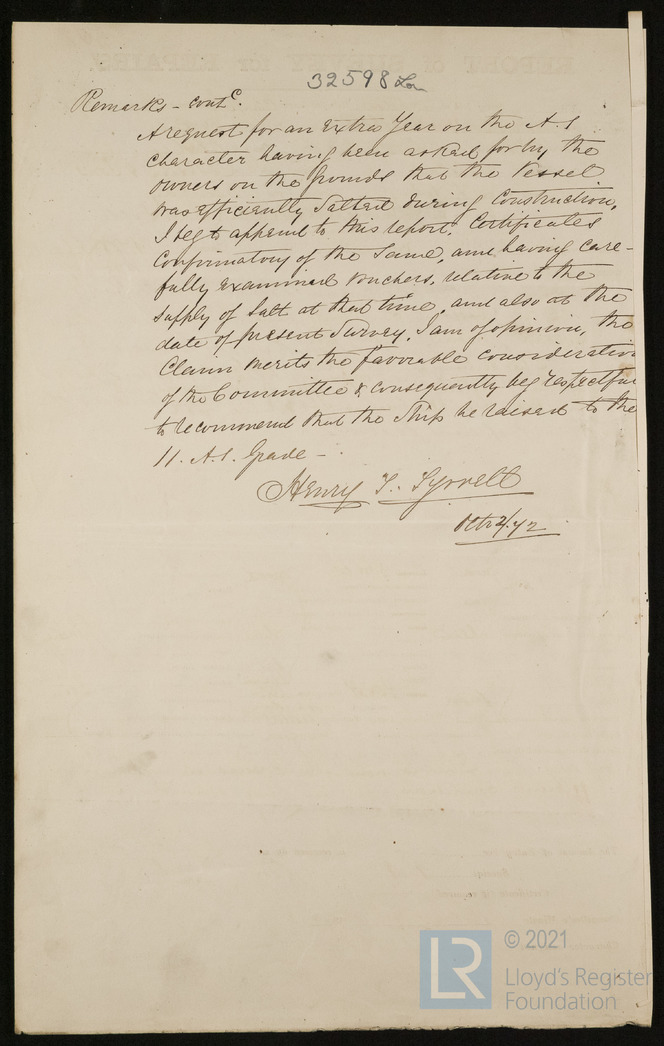 32598 Lon
Remarks - contd.
A request for an Extra Year on the A.1
Character having been asked for by the
owners on the grounds that the Vessel
was efficiently Salted during Construction,
I beg to append to this report, Certificates
Confirmatory of the Same, and having care-
fully examined Vouchers, relative to the
Supply of Salt at that time, and also at the
date of present Survey, I am of opinion, the
Claim Merits the favorable consideration
of the Committee & consequently beg respectfu
to recommend that the Ship be raised to the
11. A.1. Grade -
Henry T. Tyrrell
Octr 2/72
© 2021
LR
Lloyd's Register
Foundation